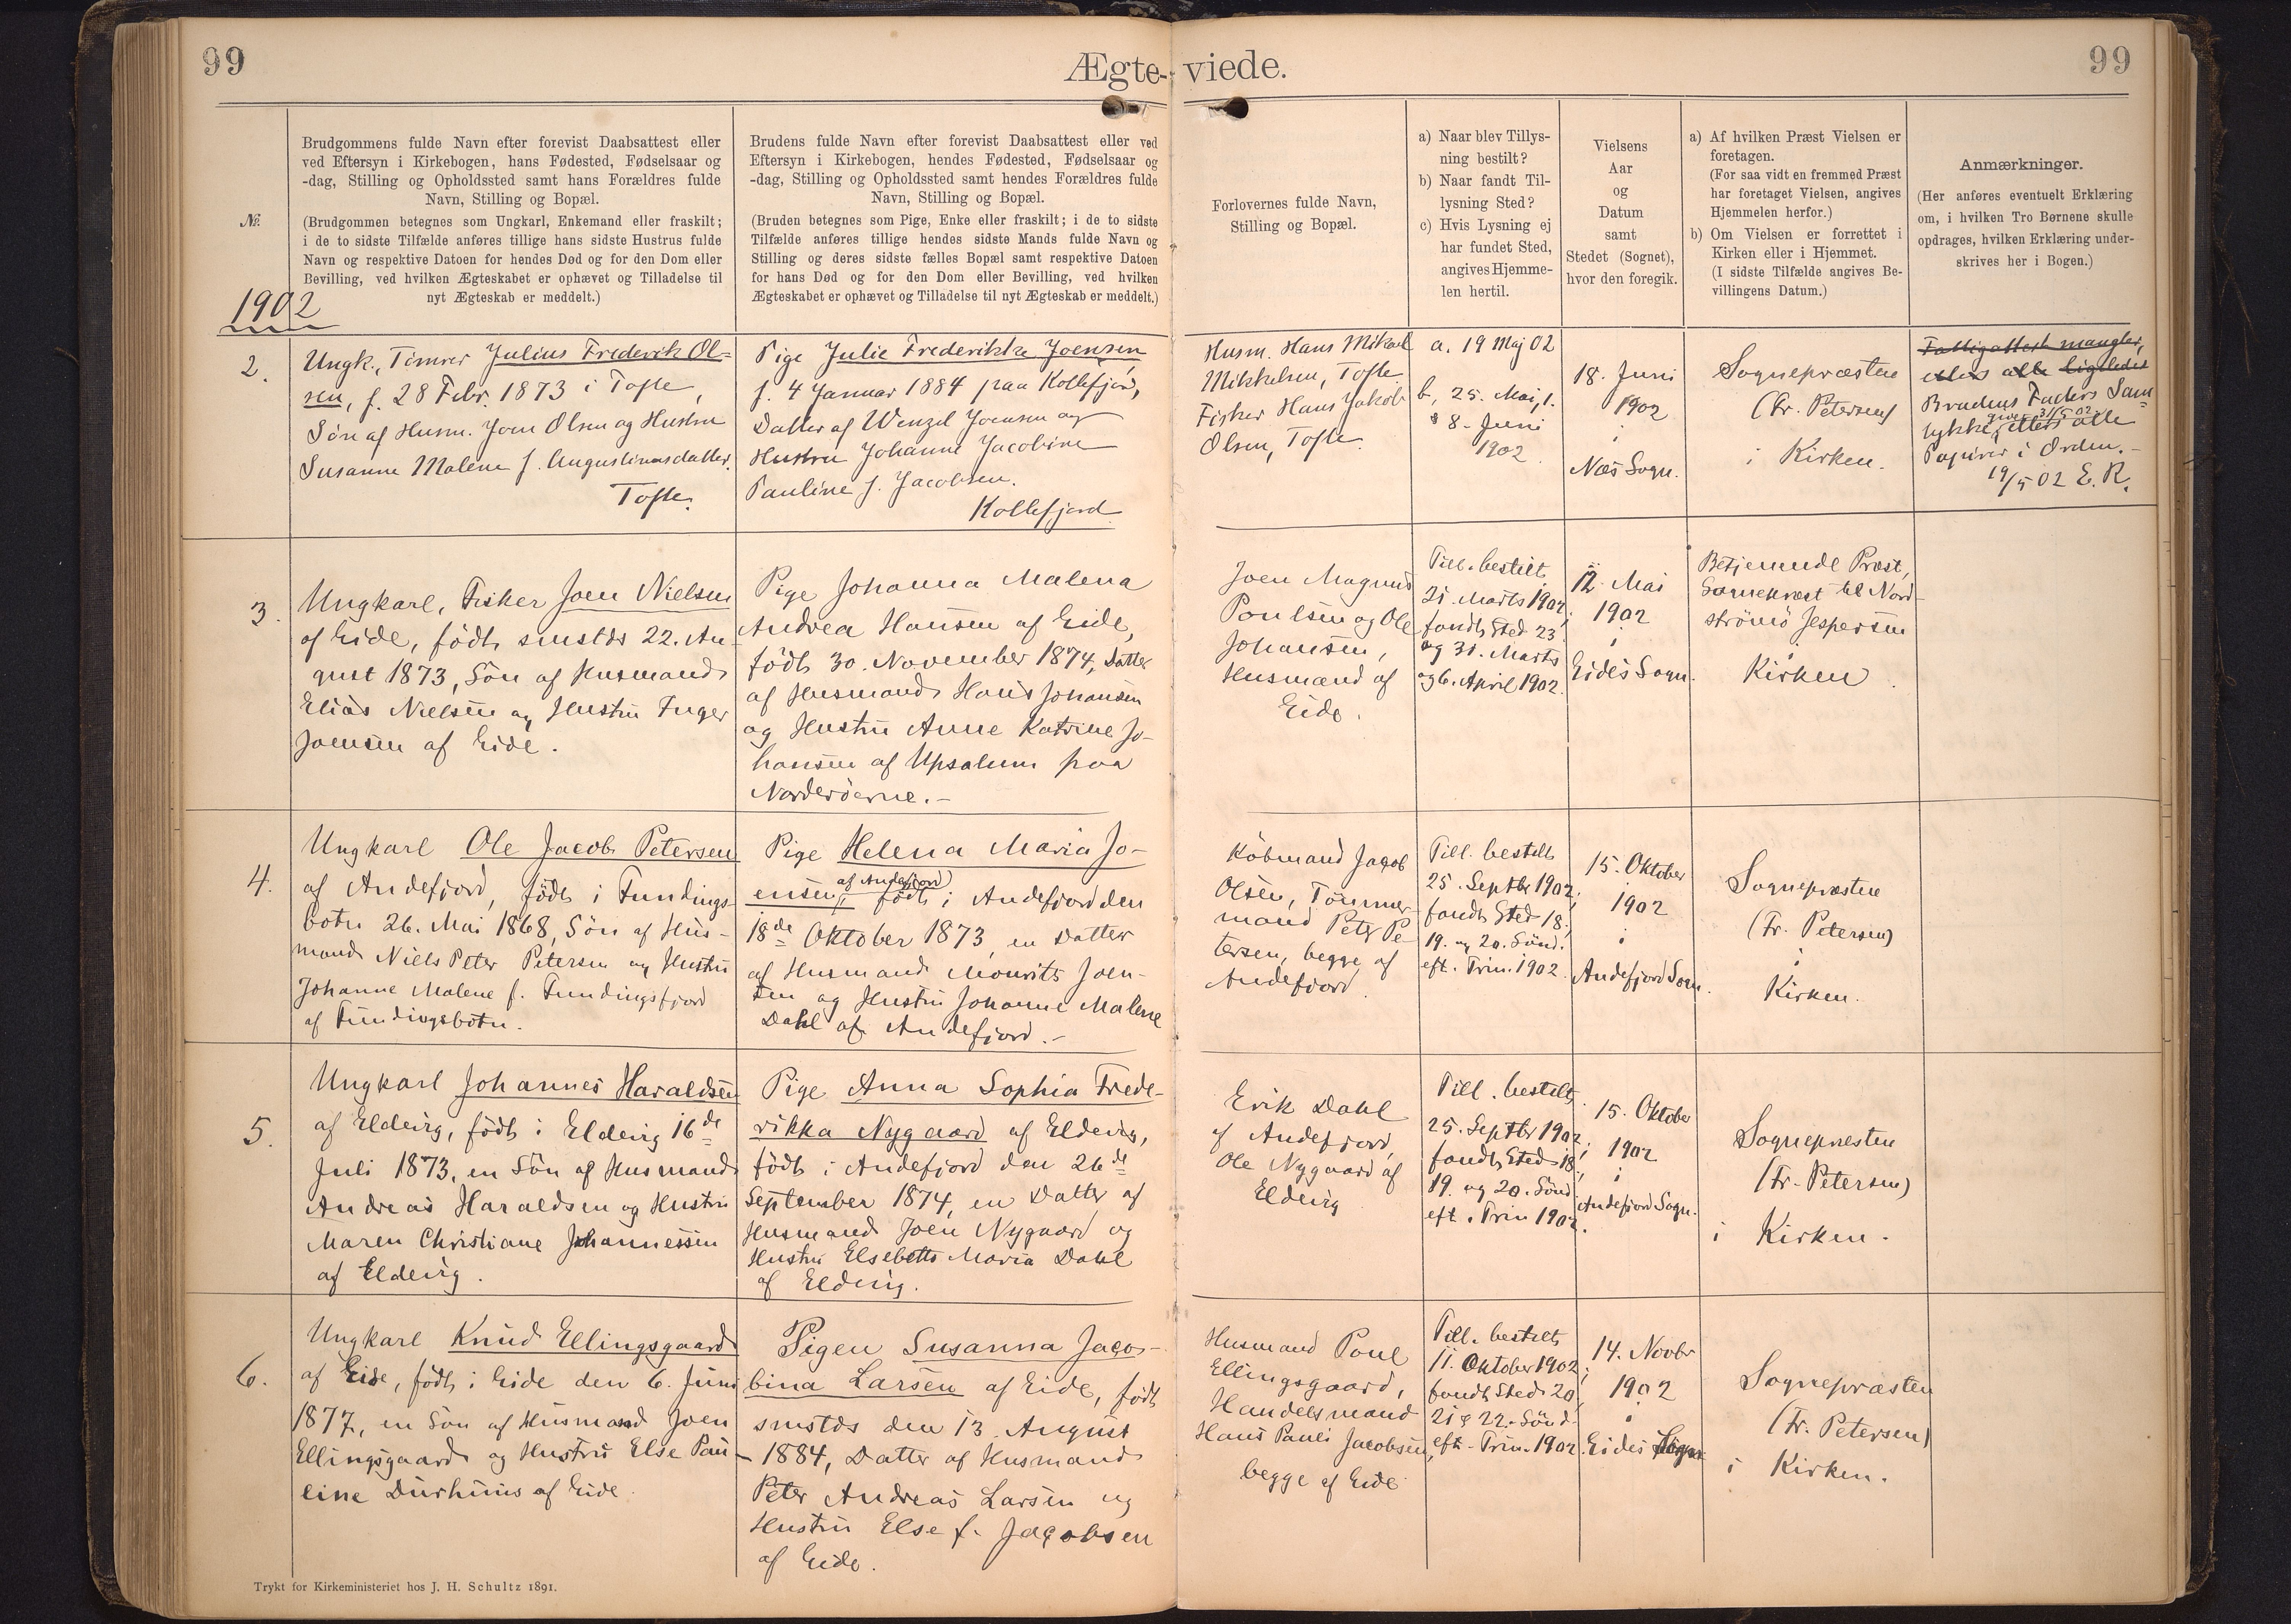 99
Ægte-viede.
99
№.
Brudgommens fulde Navn efter forevist Daabsattest eller
ved Eftersyn i Kirkebogen, hans Fødested, Fødselsaar og
-dag, Stilling og Opholdssted samt hans Forældres fulde
Navn, Stilling og Bopæl.
(Brudgommen betegnes som Ungkarl, Enkemand eller fraskilt;
i de to sidste Tilfælde anføres tillige hans sidste Hustrus fulde
Navn og respektive Datoen for hendes Død og for den Dom eller
Bevilling, ved hvilken Ægteskabet er ophævet og Tilladelse til
nyt Ægteskab er meddelt.)
Brudens fulde Navn efter forevist Daabsattest eller ved
Eftersyn i Kirkebogen, hendes Fødested, Fødselsaar og
-dag, Stilling og Opholdssted samt hendes Forældres fulde
Navn, Stilling og Bopæl.
(Bruden betegnes som Pige, Enke eller fraskilt; i de to sidste
Tilfælde anføres tillige hendes sidste Mands fulde Navn og
Stilling og deres sidste fælles Bopæl samt respektive Datoen
for hans Død og for den Dom eller Bevilling, ved hvilken
Ægteskabet er ophævet og Tilladelse til nyt Ægteskab er meddelt.)
Forlovernes fulde Navn,
Stilling og Bopæl.
a) Naar blev Tillys-
ning bestilt?
b) Naar fandt Til-
lysning Sted?
c) Hvis Lysning ej
har fundet Sted,
angives Hjemme-
len hertil.
Vielsens
Aar
og
Datum
samt
Stedet (Sognet),
hvor den foregik.
a) Af hvilken Præst Vielsen er
foretagen.
(For saa vidt en fremmed Præst
har foretaget Vielsen, angives
Hjemmelen herfor.)
b) Om Vielsen er forrettet i
Kirken eller i Hjemmet.
(I sidste Tilfælde angives Be-
villingens Datum.)
Anmærkninger.
(Her anføres eventuelt Erklæring
om, i hvilken Tro Børnene skulle
opdrages, hvilken Erklæring under-
skrives her i Bogen.)
1902
2.
Ungk., Tømrer Julius Frederik Ol-
sen, f. 28 Febr. 1873 i Tofte,
Søn af Husm. Joen Olsen og Hustru
Susanne Malene f. Augustinusdatter.
Tofte.
Pige Julie Frederikke Joensen
f. 4 Januar 1884 paa Kollefjord,
Datter af Wenzel Joensen og
Hustru Johanne Jacobine
Pauline f. Jacobsen.
Kollefjord
Husm. Hans Mikael
Mikkelsen, Tofte
Fisker Hans Jakob
Olsen, Tofte.
a. 19 Maj 02
b, 25. Mai, 1.
& 8. Juni
1902
18. Juni
1902
i
Næs Sogn.
Sognepræsten
(Fr. Petersen)
i Kirken.
Fattigattest mangler,
ellers alle ligeledes
Brudens Faders Sam-
tykke, given 31/5 02 ellers alle
Papirer i Orden.-
19/5 02 E. R.
3.
Ungkarl, Fisker Joen Nielsen
af Eide, födt smstds 22. Au-
gust 1873, Sön af Husmand
Elias Nielsen og Hustru Inger
Joensen af Eide.
Pige Johanna Malena
Andrea Hansen af Eide,
födt 30. November 1874, Datter
af Husmand Hans Johansen
og Hustru Anne Katrine Jo-
hansen af Upsalum paa
Norderöerne.-
Joen Magnus
Poulsen og Ole
Johansen,
Husmænd af
Eide.
Till. bestilt
21. Marts 1902;
fandt Sted 23.
og 31. Marts
og 6. April 1902.
12. Mai
1902
i
Eides Sogn.
Betjenende Præst,
Sognepræst til Nord-
strömö Jespersen
i
Kirken.
4.
Ungkarl Ole Jacob Petersen
af Andefjord, födt i Fundings-
botn 26. Mai 1868, Sön af Hus-
mand Niels Peter Petersen og Hustru
Johanne Malene f. Fundingsfjord
af Fundingsbotn.
Pige Helena Maria Jo-
ensen, af Andefjord, födt i Andefjord den
18de Oktober 1873, en Datter
af Husmand Mourits Joen-
sen og Hustru Johanne Malene
Dahl af Andefjord.-
Köbmand Jacob
Olsen, Tömmer-
mand Peter Pe-
tersen, begge af
Andefjord
Till. bestilt
25. Septbr 1902;
fandt Sted 18,
19. og 20. Sönd.
eft. Trin. 1902.
15. Oktober
1902
i
Andefjord Sogn.
Sognepræsten
(Fr. Petersen)
i
Kirken.
5.
Ungkarl Johannes Haraldsen
af Eldevig, födt i Eldevig 16de
Juli 1873, en Sön af Husmand
Andreas Haraldsen og Hustru
Maren Christiane Johannessen
af Eldevig.
Pige Anna Sophia Frede-
rikka Nygaard af Eldevig,
födt i Andefjord den 26de
September 1874, en Datter af
Husmand Joen Nygaard og
Hustru Elsebetts Maria Dahl
af Eldevig.
Erik Dahl
af Andefjord,
Ole Nygaard af
Eldevig
Till. bestilt
25. Septbr 1902;
fandt Sted 18,
19. og 20. Sönd.
eft. Trin 1902.
15. Oktober
1902
i
Andefjord Sogn.
Sognepræsten
(Fr. Petersen)
i Kirken.
6.
Ungkarl Knud Ellingsgaard
af Eide, födt i Eide den 6. Juni
1877, en Sön af Husmand Joen
Ellingsgaard og Hustru Else Pau-
line Durhuus af Eide.
Pigen Susanna Jaco-
bina Larsen af Eide, födt
smstds den 13. August
1884, Datter af Husmand
Peter Andreas Larsen og
Hustru Else f. Jacobsen
af Eide.
Husmand Poul
Ellingsgaard,
Handelsmand
Hans Pauli Jacobsen,
begge af Eide
Till. bestilt
11. Oktober 1902;
fandt Sted 20,
21 & 22. Sönd.
eft. Trin. 1902.
14. Novbr
1902
i
Eides Sogn
Sognepræsten
(Fr. Petersen)
i Kirken.
Trykt for Kirkeministeriet hos J. H. Schultz 1891.